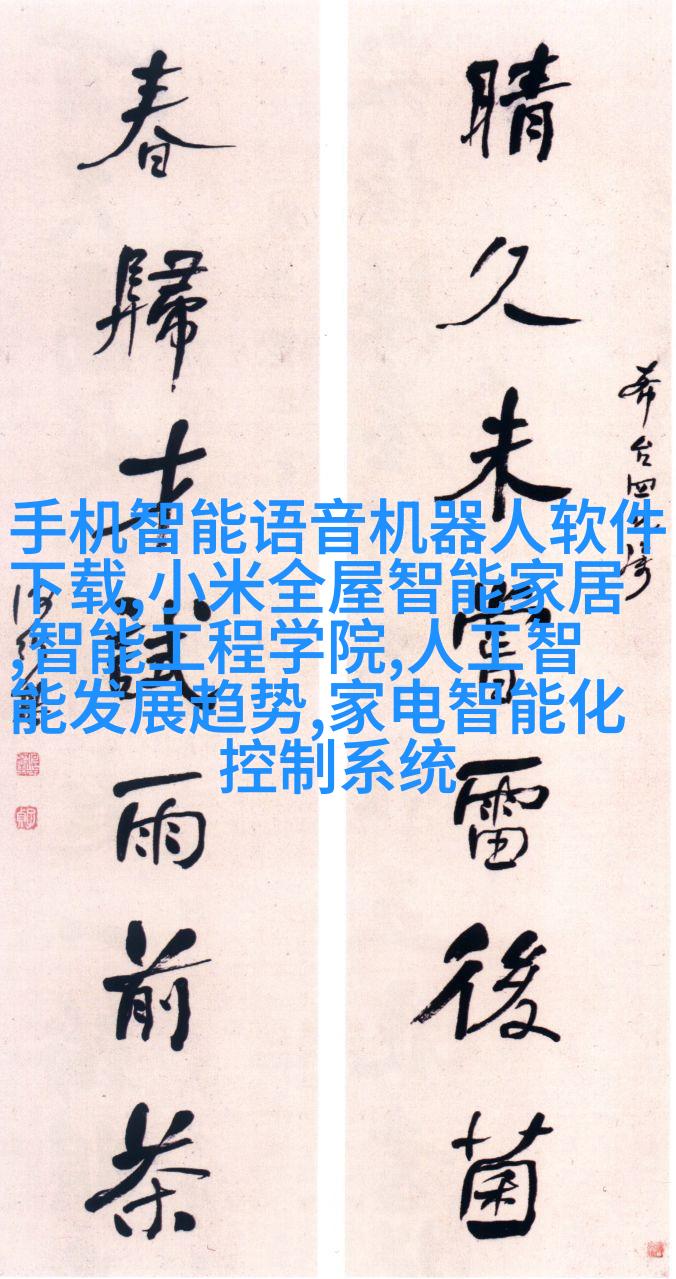 晴久未嘗雷後菌
春歸才試雨前茶
手机智能语音机器人软件
下载,小米全屋智能家居
,智能工程学院,人工智
能发展趋势,家电智能化
控制系统